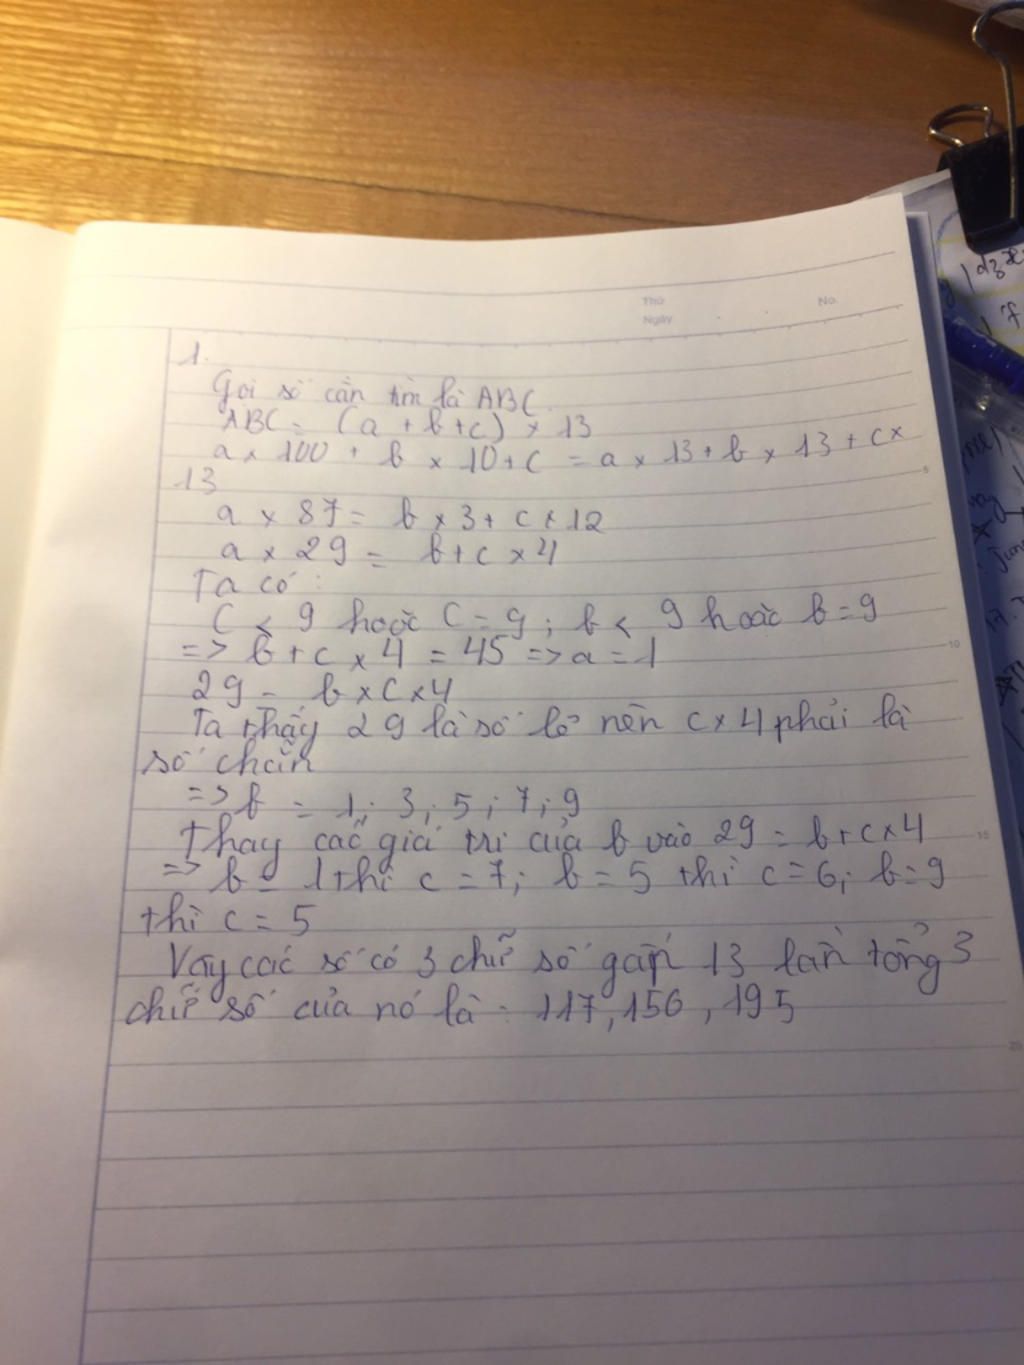 Thứ
Ngày
No.
1.
Gọi số cần tìm là ABC
ABC = (a + b + c) × 13
a × 100 + b × 10 + c = a × 13 + b × 13 + c ×
13
a × 87 = b × 3 + c × 12
a × 29 = b + c × 4
Ta có :
C < 9 hoặc C = 9 ; b < 9 hoặc b = 9
=> b + c × 4 = 45 => a = 1
29 = b × c × 4
Ta thấy 29 là số lẻ nên c × 4 phải là
số chẵn
=> b = 1 ; 3 ; 5 ; 7 ; 9
Thay các giá trị của b vào 29 = b + c × 4
=> b = 1 thì c = 7 ; b = 5 thì c = 6 ; b = 9
thì c = 5
Vậy các số có 3 chữ số gấp 13 lần tổng 3
chữ số của nó là : 117, 156, 195
5
10
15
20